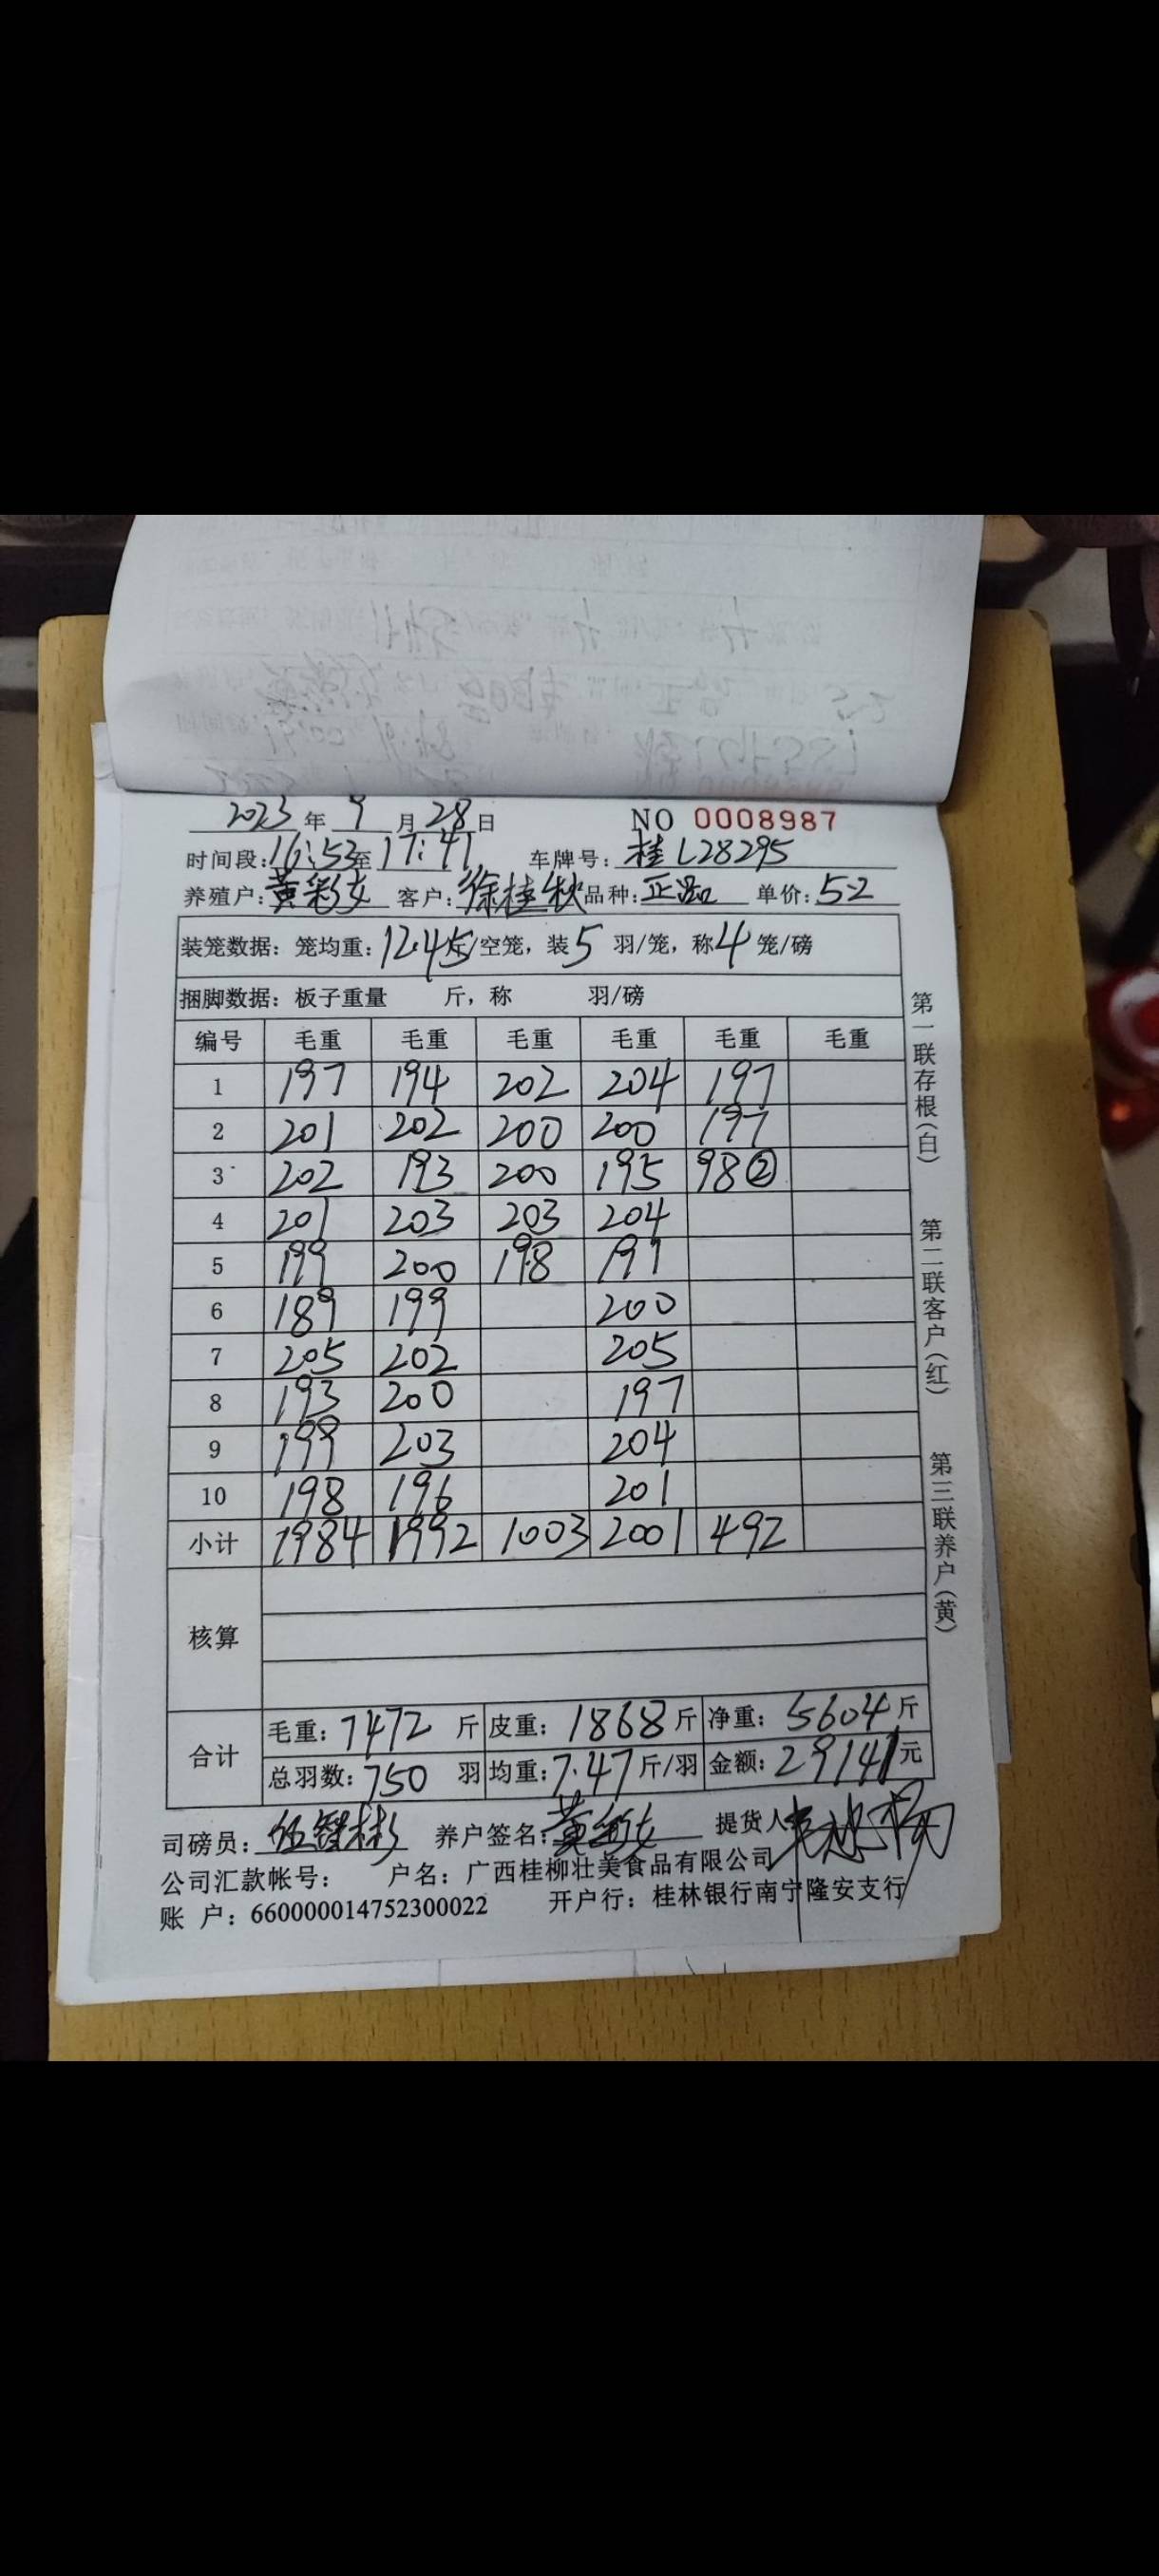 2023年9月28日 NO 0008987
时间段:16:53至17:41 车牌号:桂L28295
养殖户:黄彩女 客户:徐桂秋 品种:正品 单价:5.2
装笼数据：笼均重:12.45斤/空笼，装5羽/笼，称4笼/磅
捆脚数据：板子重量 斤，称 羽/磅
编号 毛重 毛重 毛重 毛重 毛重 毛重
1 197 194 202 204 197
2 201 202 200 200 197
3 202 193 200 195 98②
4 201 203 203 204
5 199 200 198 191
6 189 199 200
7 205 202 205
8 193 200 197
9 199 203 204
10 198 196 201
小计 1984 1992 1003 2001 492
核算
合计 毛重:7472斤 皮重:1868斤 净重:5604斤
总羽数:750羽 均重:7.47斤/羽 金额:29141元
司磅员: 养户签名:黄彩女 提货人
公司汇款帐号: 户名：广西桂柳壮美食品有限公司
账 户：660000014752300022 开户行：桂林银行南宁隆安支行
第一联存根(白) 第二联客户(红) 第三联养户(黄)